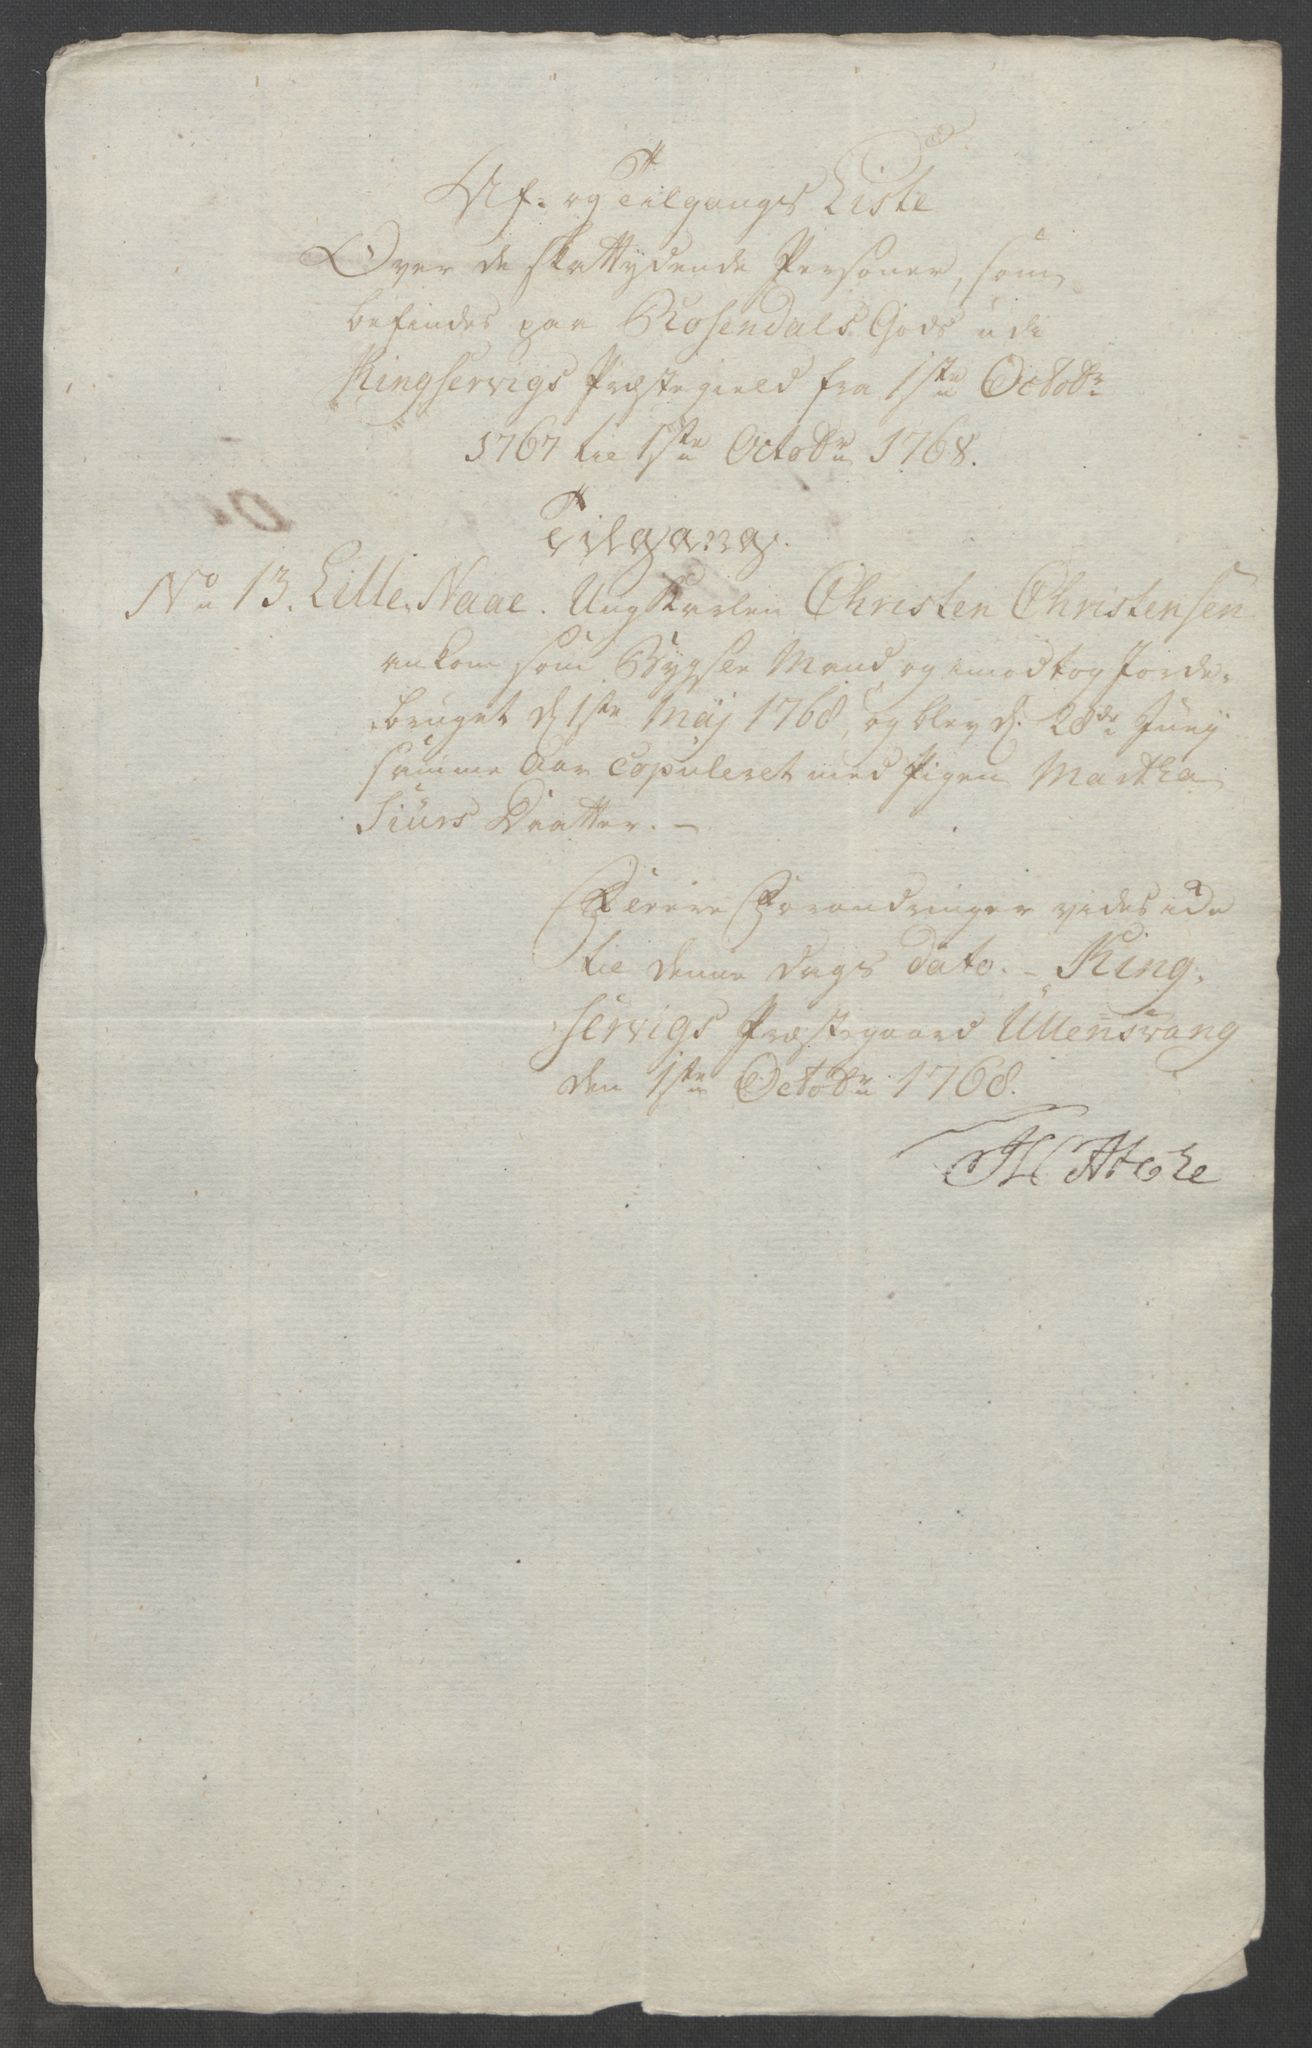 Af- og Tilgangs Liste
Over de skattydende Personer, som
befindes paa Rosendals Gods udi
Kingservigs Præstegield fra 1ste Octobr
1767 til 1ste Octobr 1768.
Tilgang.
No 13. Lille Naae. Ungkarlen Christen Christensen
ankom som Bygsel Mand og imodtog Jorde-
bruget d 1ste Maij 1768, og blev d. 28de Junij
samme Aar copuleret med Pigen Martha
Siurs Daatter. –
Fleere Forandringer vides icke
til denne Dags dato. – King-
servigs Præstegaard Ullensvang
den 1ste Octobr 1768.